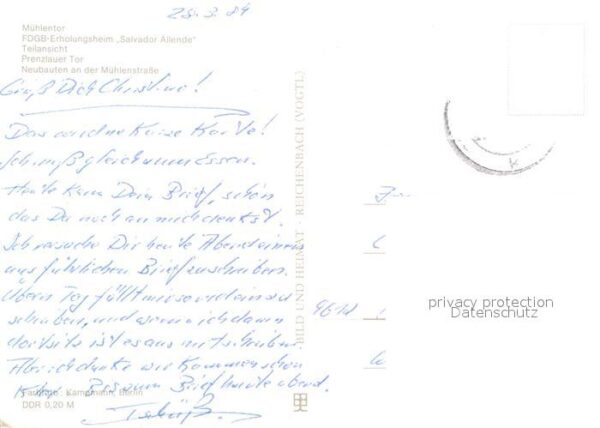 28.3.84
Mühlentor
FDGB-Erholungsheim „Salvador Allende"
Teilansicht
Prenzlauer Tor
Neubauten an der Mühlenstraße
Grüß Dich Christine!
Das wird ne Kurze Karte!
Ich muß gleich zum Essen.
Heute kam Dein Brief, schön
das Du noch an mich denkst.
Ich versuche Dir heute Abend einen
ausführlichen Brief zu schreiben.
Übern Tag fällt mir so viel ein zu
schreiben, und wenn ich dann
sitz ist es aus mit schreiben.
Aber ich denke wir kommen schon
klar. Bis zum Brief heute abend.
Tschüß.
Fotos: Kampmann, Berlin
DDR 0,20 M
BILD UND HEIMAT · REICHENBACH (VOGTL)
privacy protection
Datenschutz